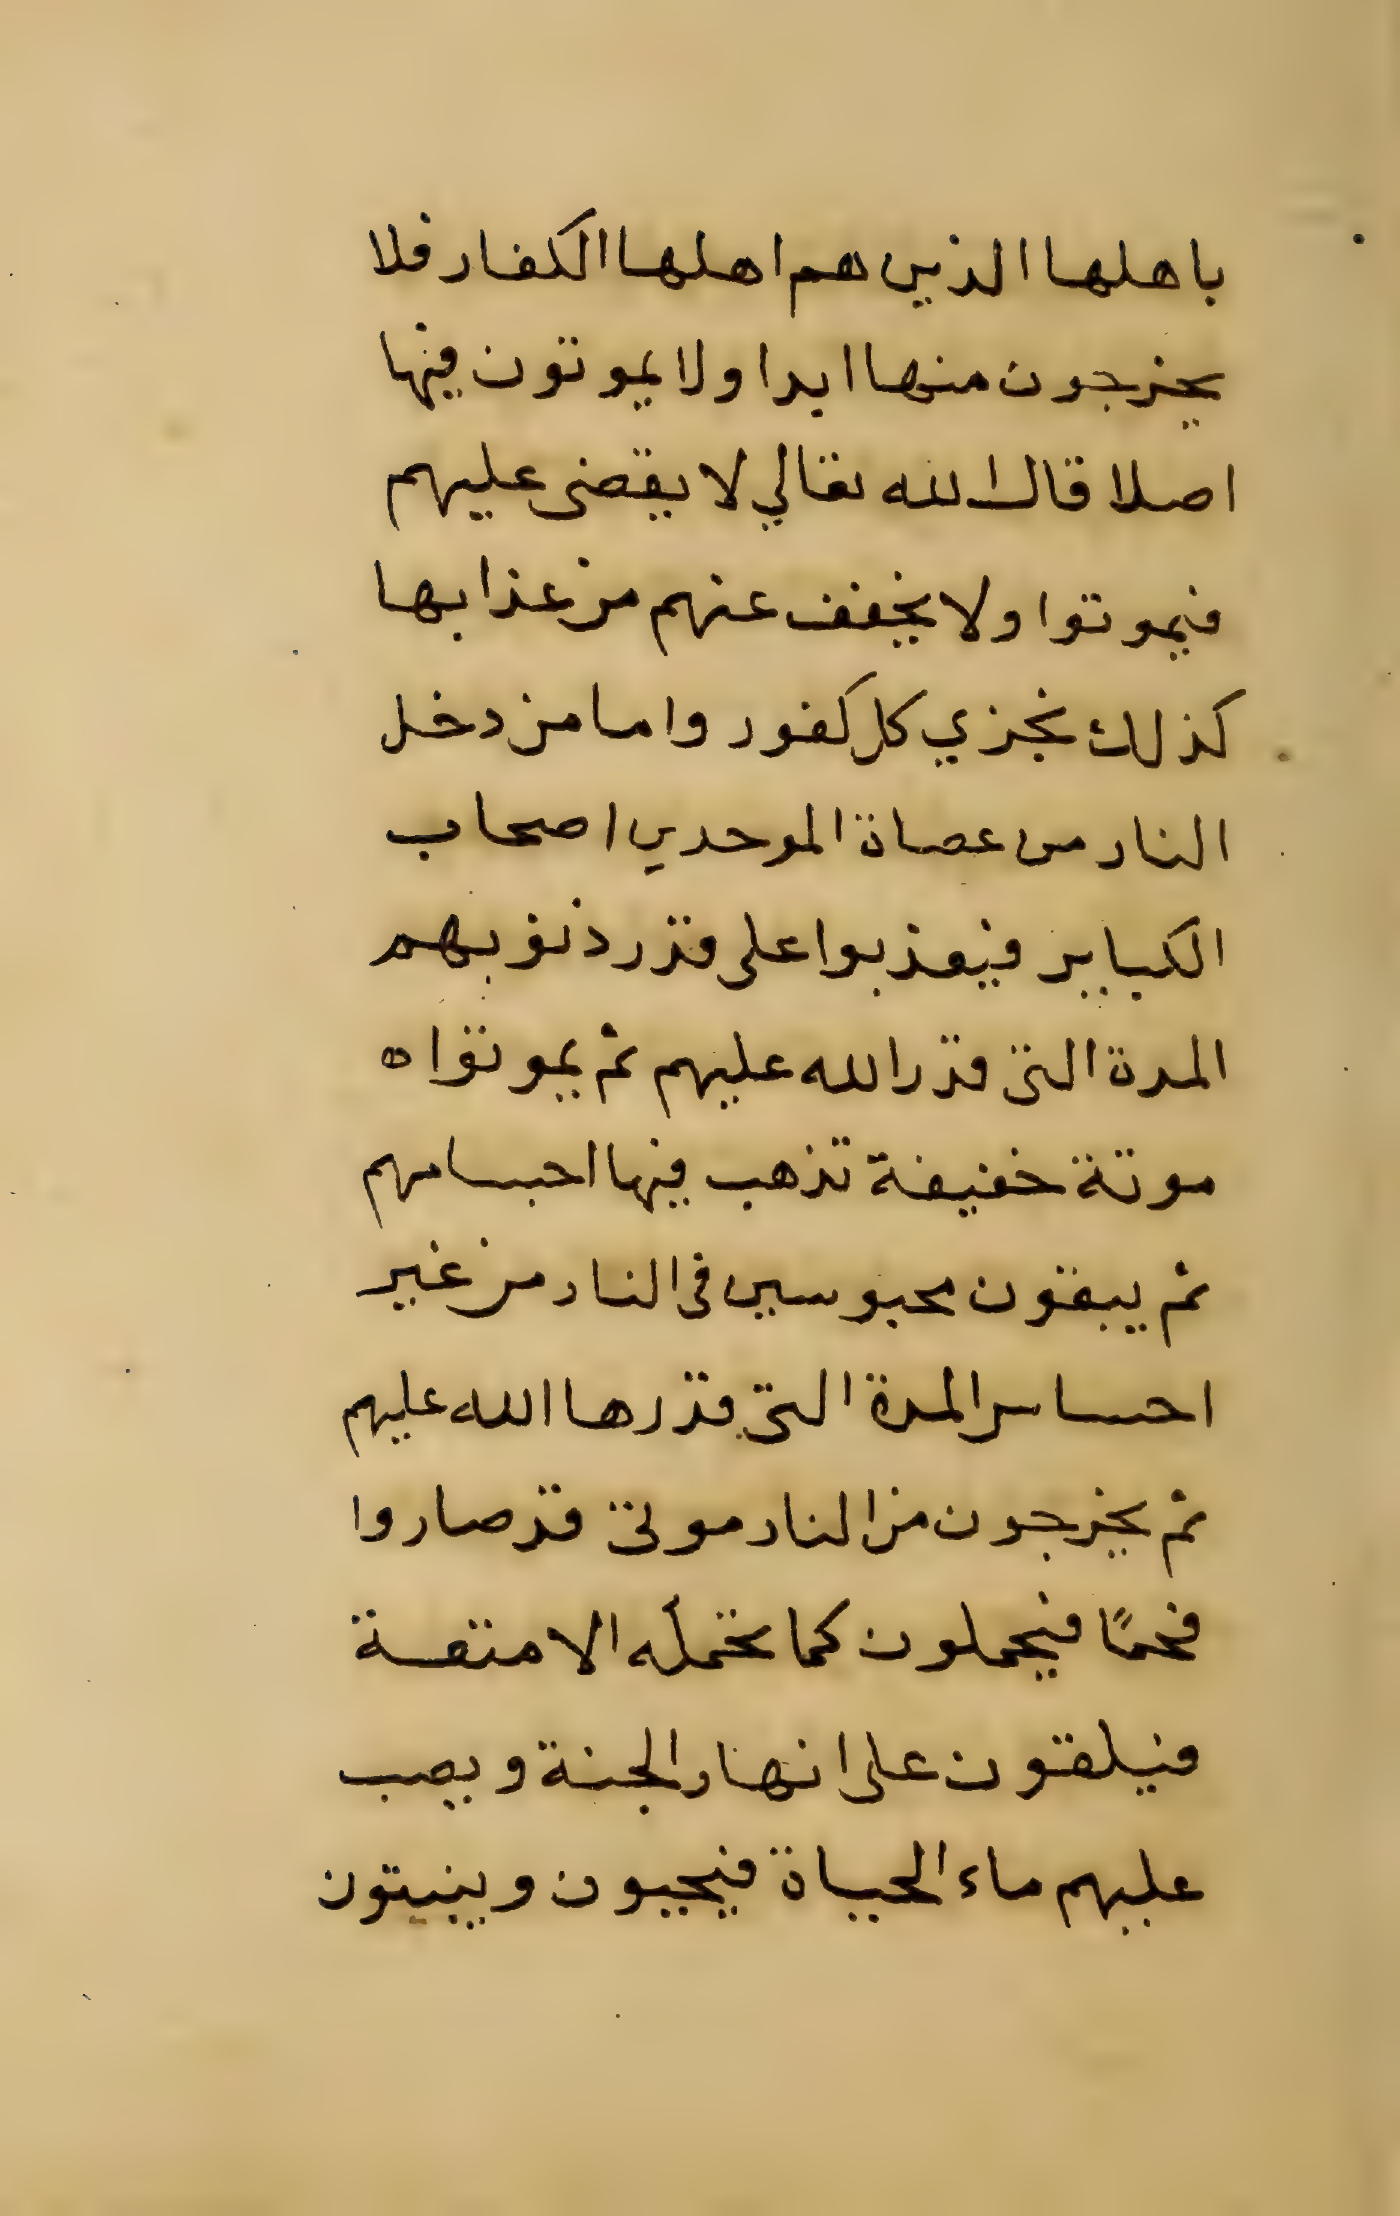 باهلها الذين هم اهلها الكفار فلا
يخرجون منها ابدا ولا يموتون فيها
اصلا قال الله تعالي لا يقضى عليهم
فيموتوا ولا يخفف عنهم من عذابها
كذلك نجزي كل كفور واما من دخل
النار من عصاة الموحدين اصحاب
الكباير فيعذبوا على قدر ذنوبهم
المدة التي قدر الله عليهم ثم يموتوا ه
موتة خفيفة تذهب فيها احسامهم
ثم يبقون محبوسين في النار من غير
احساس المدة التي قدرها الله عليهم
ثم يخرجون من النار موتى قد صاروا
فحمًا فيحملون كما تحمل الامتعة
فيلقون على انهار الجنة ويصب
عليهم ماء الحياة فيحيون وينبتون